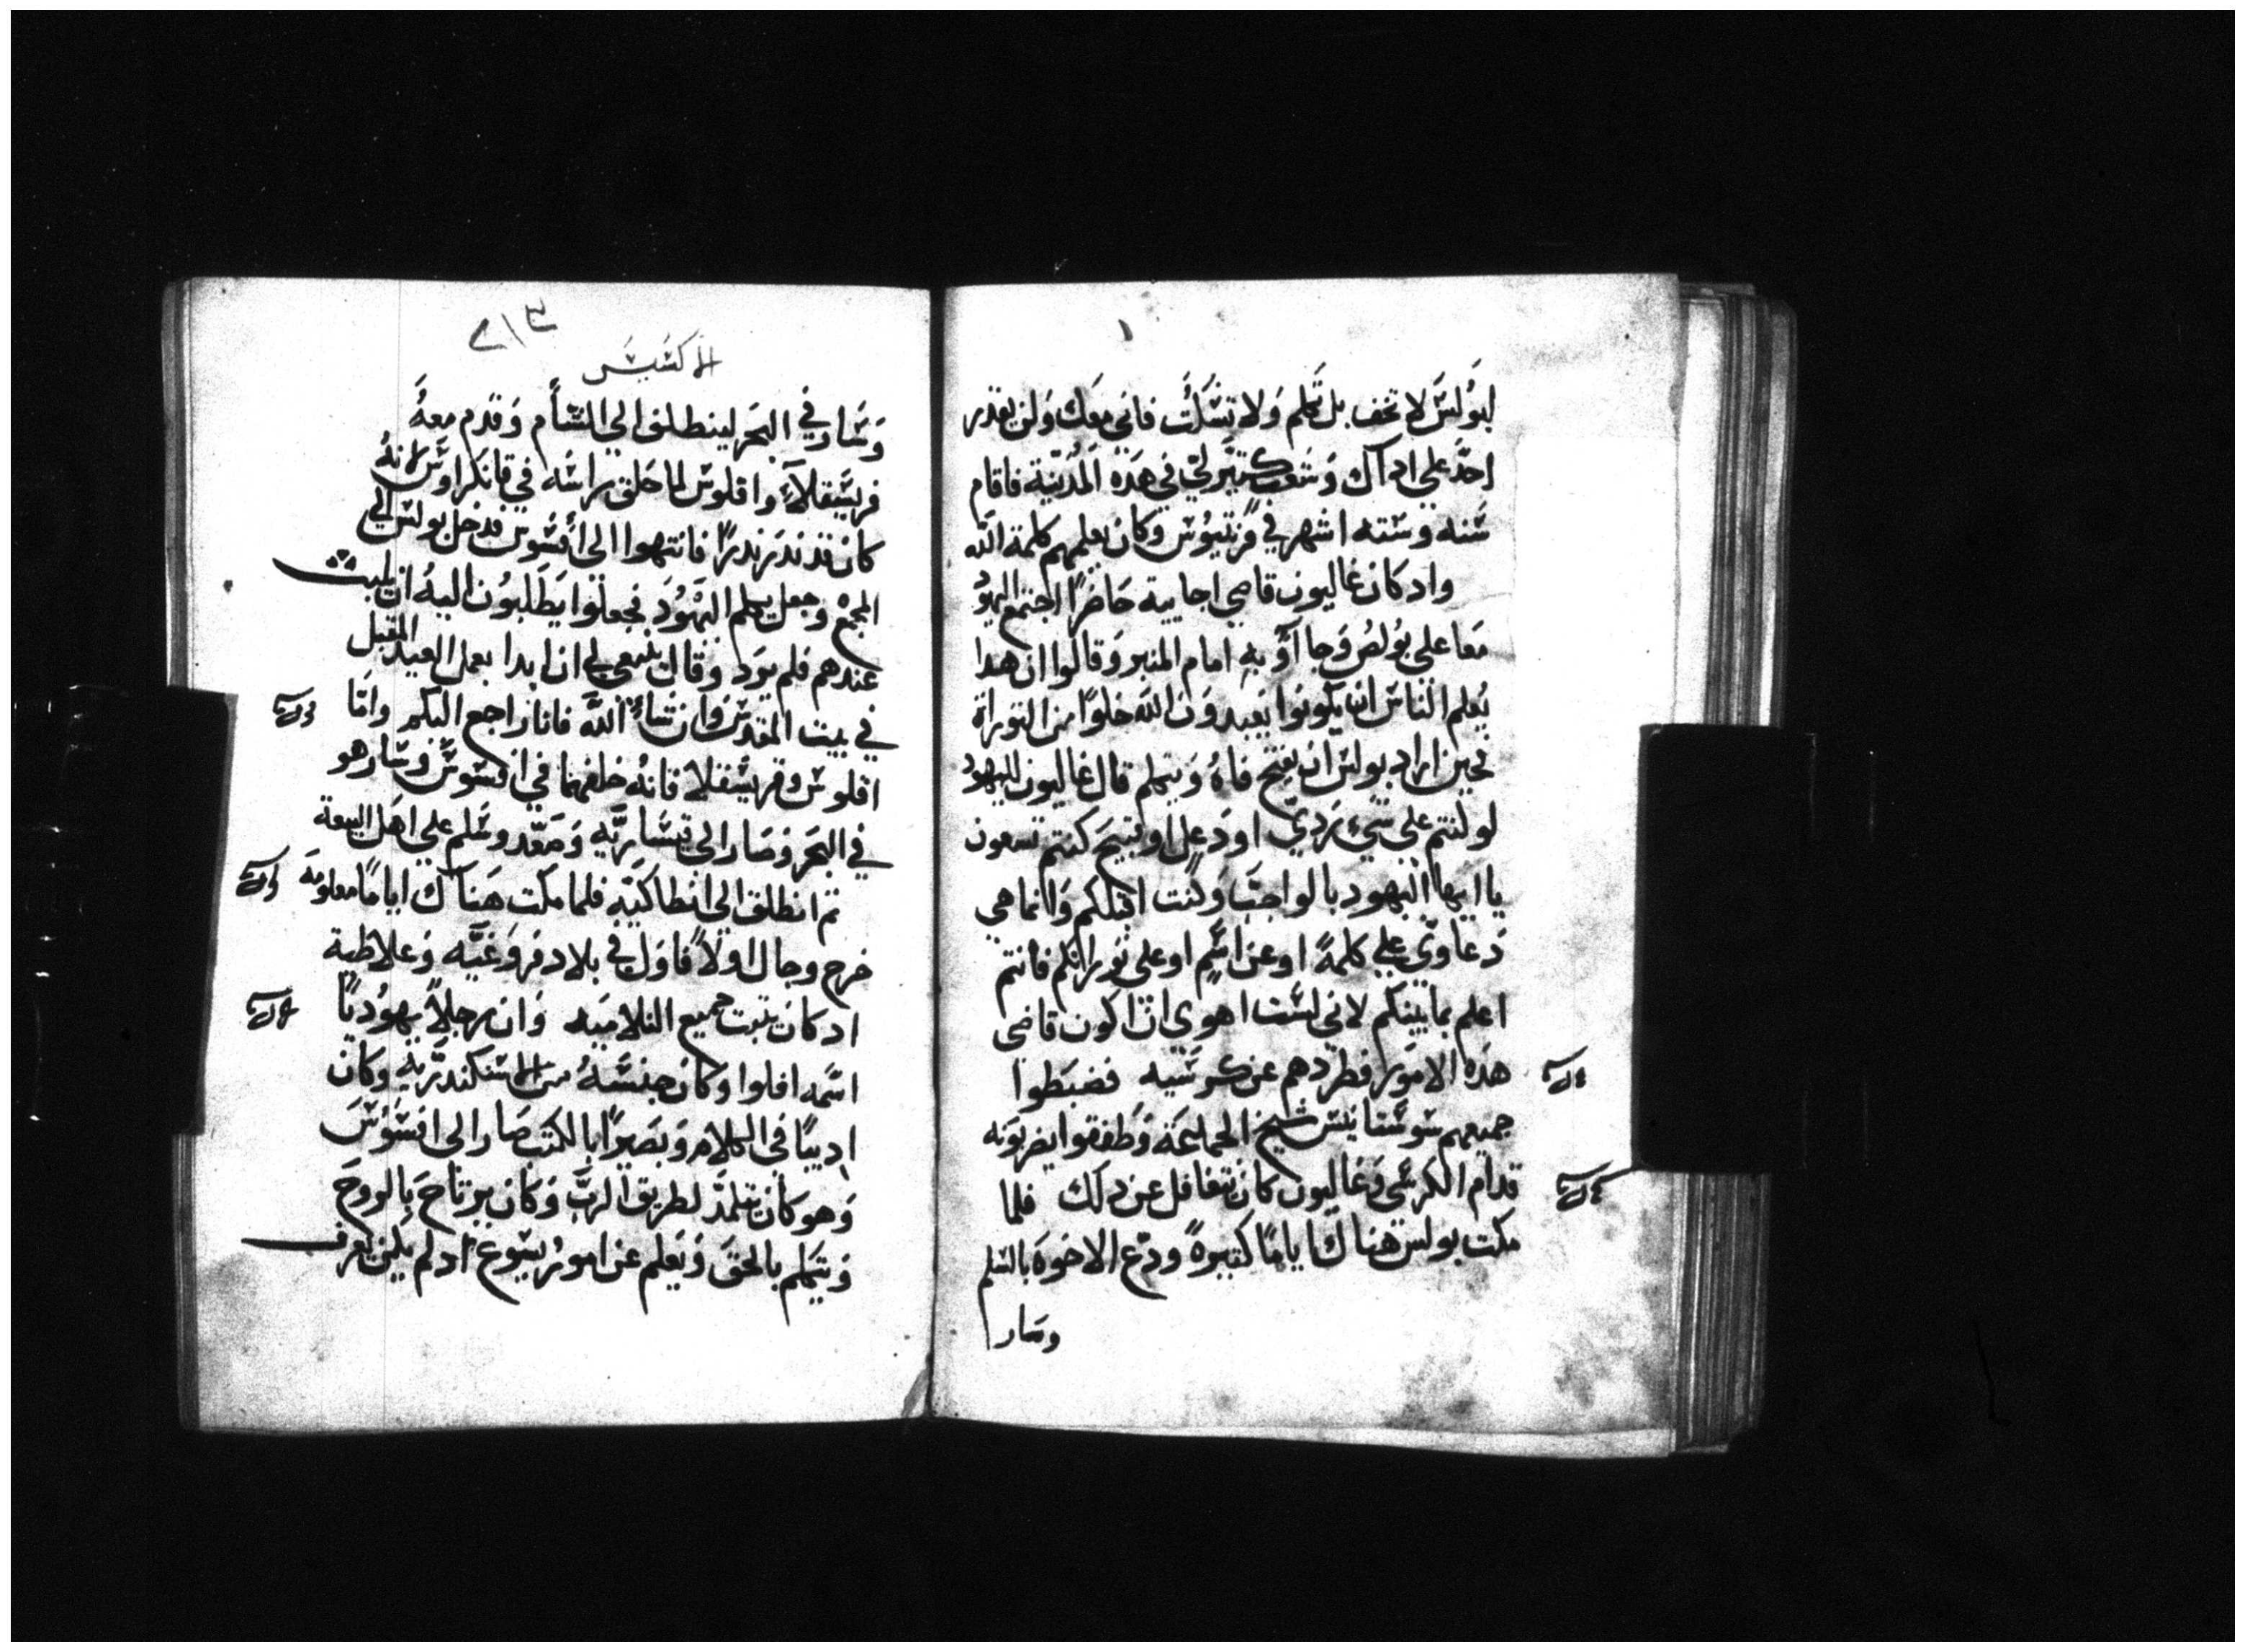 لبولس لا تخف بل تكلم ولا تسكت فاني معك ولن يقدر
احد علي اداك وشعب كتير لي في هده المدينة فاقام
سنه وسته اشهر في قرنتيوس وكان يعلمهم كلمة الله
واد كان غاليون قاضي اجاييه حاضرا اجتمع اليهود
معا علي بولص وجاآوُ به امام المنبر وقالوا ان هدا
يعلم الناس ان يكونوا يعبدون الله خلوا من التوراة
فحين اراد بولس ان يفتح فاه ويتكلم قال غاليون لليهود
لو كنتم علي شيء ردي او دغل او قبيح كنتم تسعون
يا ايها اليهود بالواجب وكنت اقبلكم وانما هي
دعاوي علي كلمة او عن اسم او علي توراتكم فانتم
اعلم بما بينكم لاني لست اهوي ان اكون قاضي
هده الامور فطردهم عن كرسيه فضبطوا
جميعهم سوستانيس شيخ الجماعة وطفقوا يضربونه
قدام الكرسي وغاليون كان يتغافل عن دلك فلما
مكت بولس هناك اياما كتيرة ودع الاخوة بالسلم
وسار
الابركسيس
وسار في البحر لينطلق الي الشأم وقدم معه
فريسقلا واقلوس لما حلق راسه في قانكراوس لانه
كان قد ندر ندرا فانتهوا الي أفسوس فدخل بولس الي
المجمع وجعل يكلم اليهود فجعلوا يطلبون اليه ان يلبث
عندهم فلم يود وقال ينبغي لي ان ابدا بعمل العيد المقبل
في بيت المقدس وان شاء الله فانا راجع اليكم واما
اقلوس وفريسقلا فانه خلفهما في افسوس وسار هو
في البحر وصار الي قيسارية وصعد وسلم علي اهل البيعة
تم انطلق الي انطاكيه فلما مكت هناك اياما معلومة
خرج وجال اولا فاول في بلاد فروغيه وغلاطية
اد كان يتبت جميع التلاميد وان رجلا يهوديا
اسمه افلوا وكان جنسه من الاسكندريه وكان
اديبا في الكلام وبصيرا بالكتب صار الي افسوس
وهو كان يتلمد لطريق الرب وكان يرتاح بالروح
ويتكلم بالحق ويعلم عن امور يسوع اد لم يكن يعرف